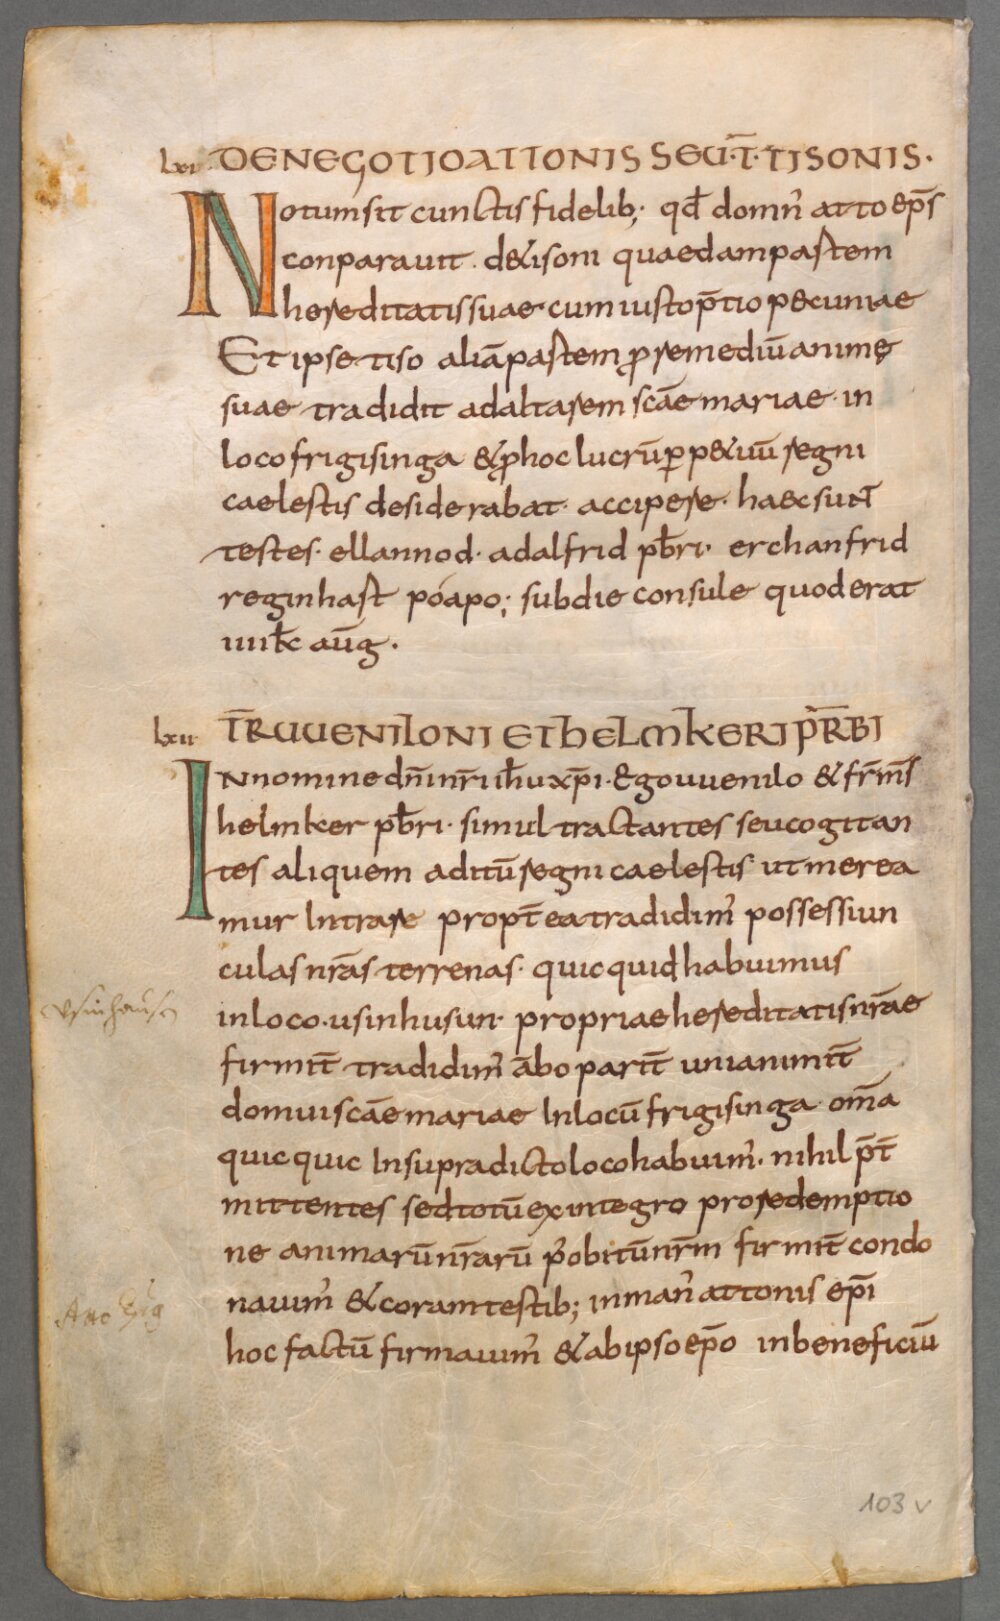 lxi DE NEGOTIOATIONIS SEU·T̄·TISONIS·
Notum sit cunctis fidelib; qd̄ domn̄ atto ep̄s
conparauit · d&isoni quaedam partem
hereditatis suae cum iusto p̄tio pecuniae
Et ipse tiso aliā partem ꝓ remediū animę
suae tradidit ad altarem sc̄ae mariae · in
loco frigisinga & ꝓ hoc lucrū ꝑp&uū regni
caelestis desiderabat · accipere · haec sunt
testes · ellannod · adalfrid pb̄ri · erchanfrid
reginhart poapo; sub die consule quod erat
iiii kl̄ aūg ·
lxii T̄R UUENILONI ET HELMKERI PR̄BI
IN nomine dn̄i nr̄i ih̄u xp̄i · Ego uuenilo & fr̄ m̄s
helmker pb̄ri · simul tractantes seu cogitan
tes aliquem aditū regni caelestis ut merea
mur Intrare propt̄ ea tradidim' possessiun
culas nr̄as terrenas · quicquid habuimus
Vsinhausen
in loco · usinhusun · propriae hereditatis nr̄ae
firmit̄ tradidim' ābo parit̄ unianimit̄
domui sc̄ae mariae In locū frigisinga · om̄a
quicquic In supradicto loco habuim' · nihil p̄t̄
mittentes sed totū ex integro pro redemptio
ne animarū nr̄arū p' obitū nr̄m firmit̄ condo
nauim' & coram testib; in man' attonis ep̄i
hoc factū firmauim' & ab ipso ep̄o in beneficiū
103 v